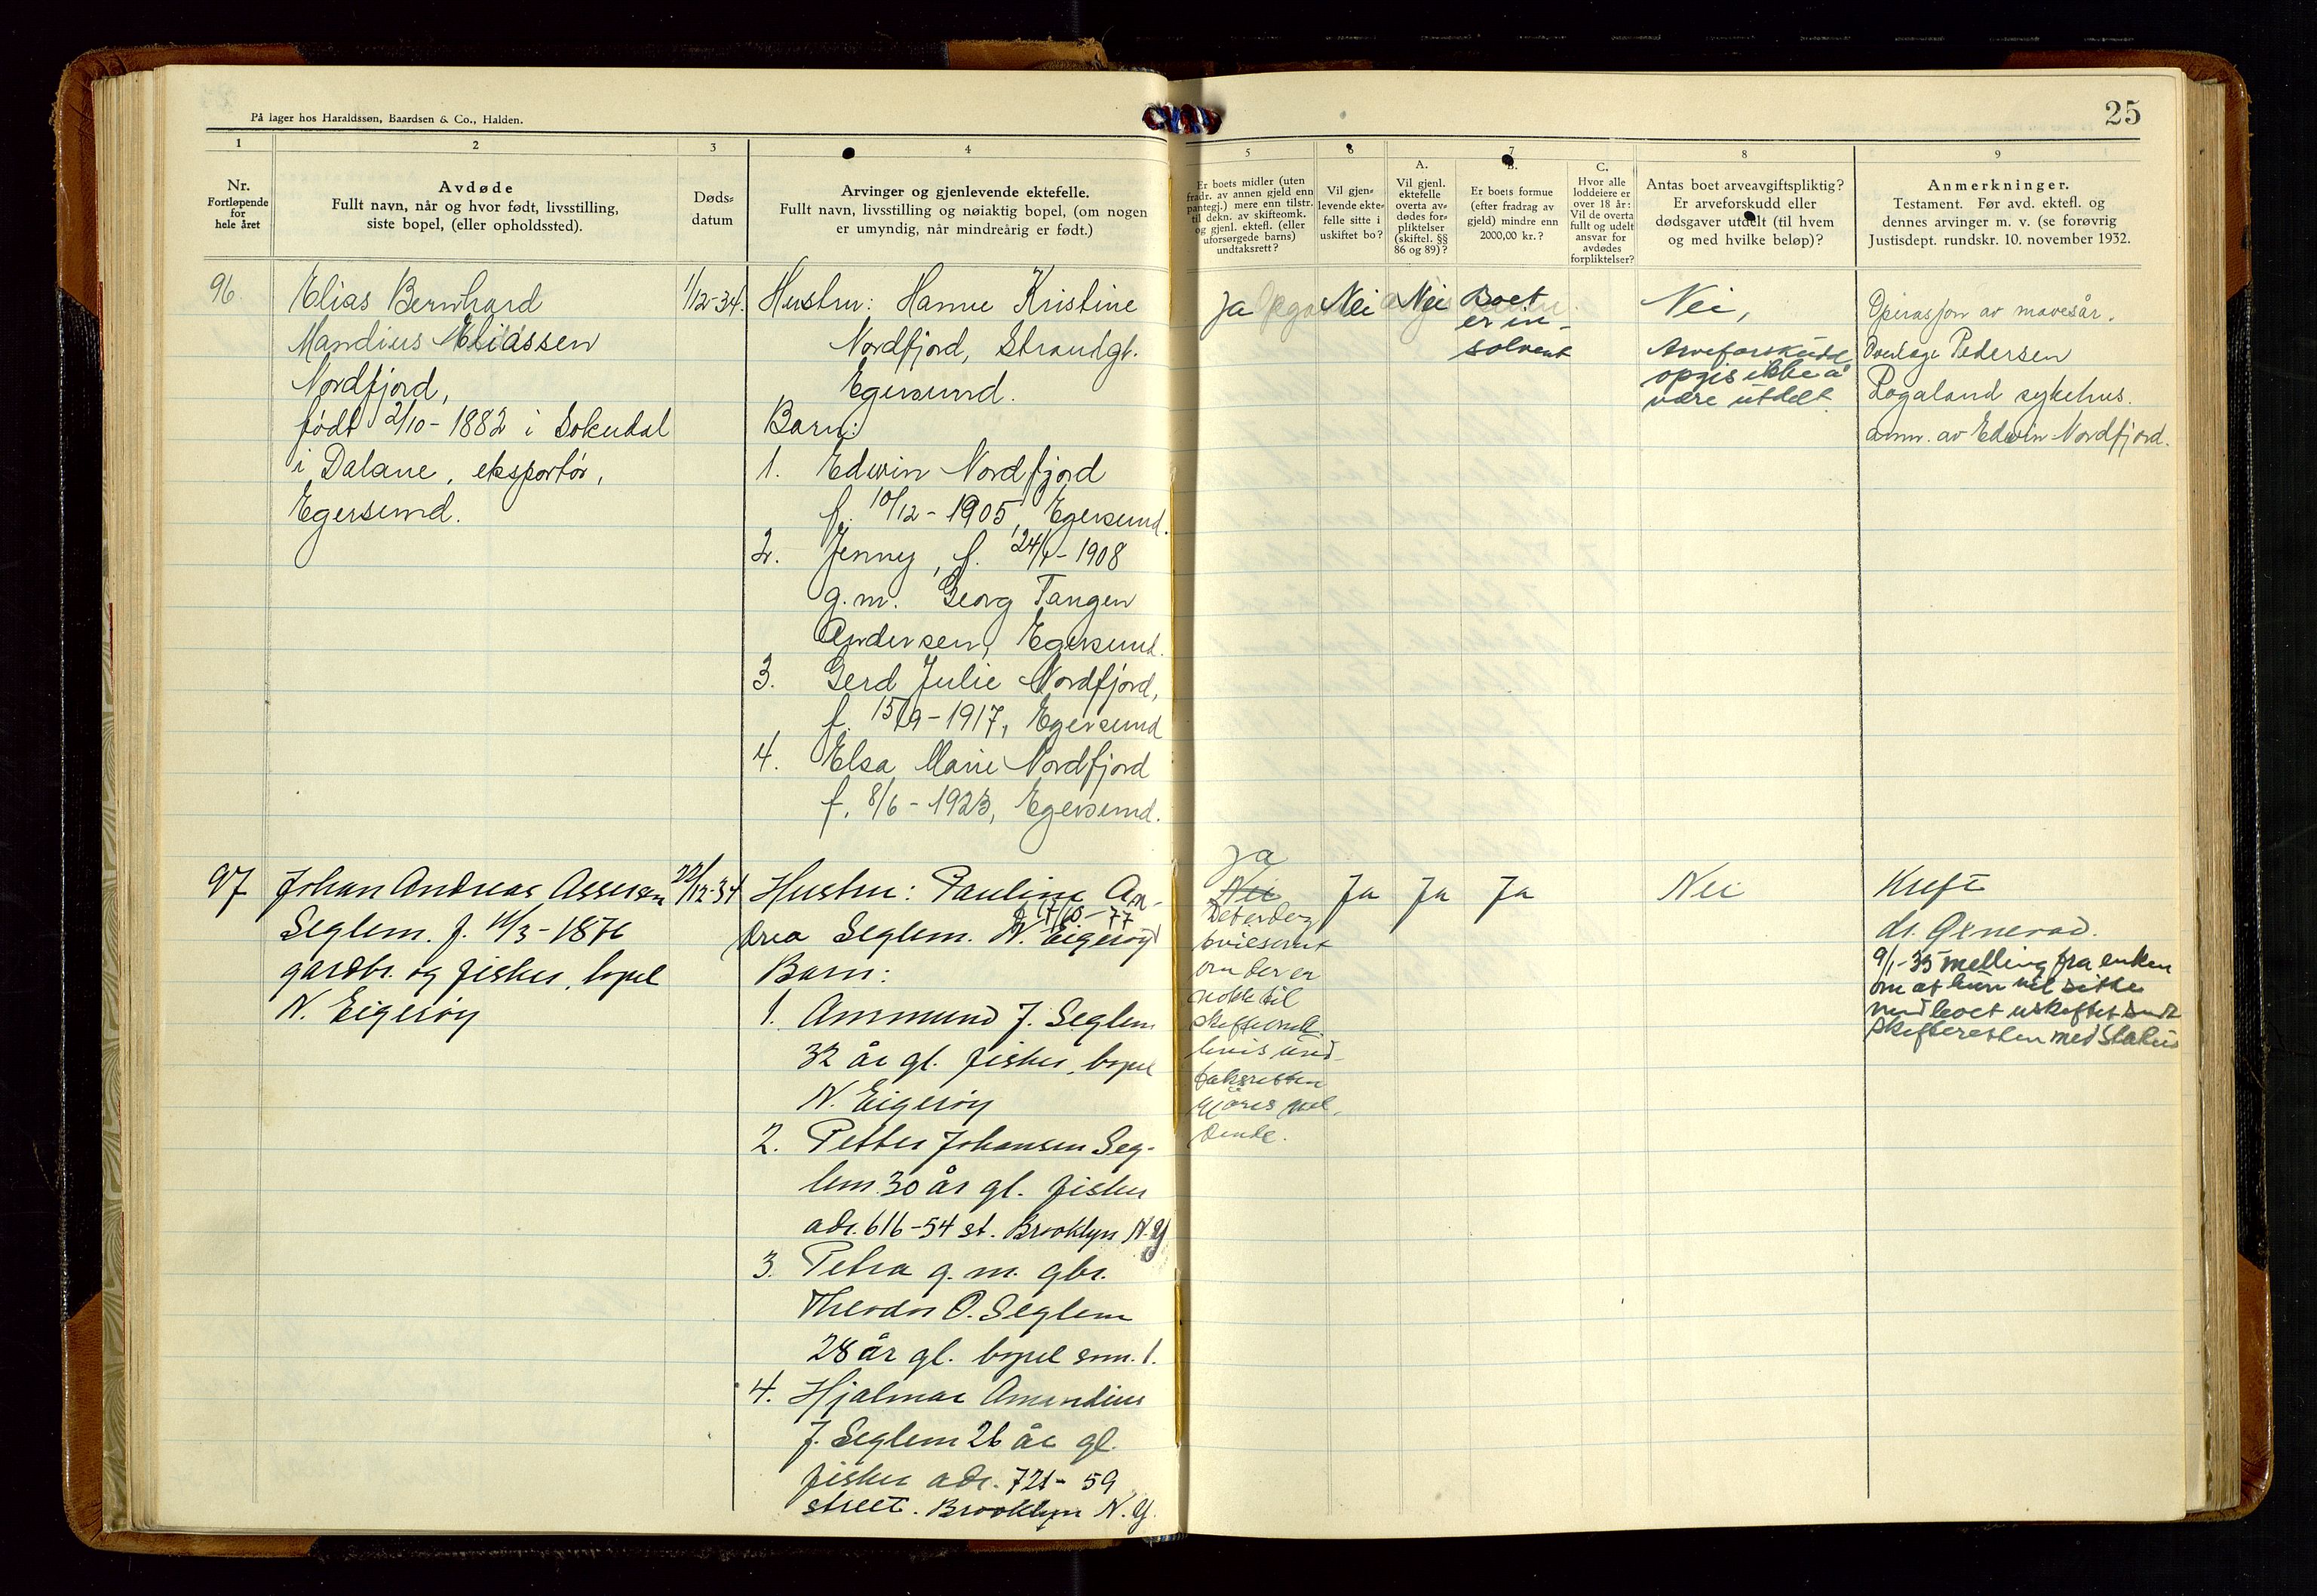 På lager hos Haraldssøn, Baardsen & Co., Halden.
25
1
2
3
4
5
6
7
8
9
Nr.
Fortløpende
for
hele året
Avdøde
Fullt navn, når og hvor født, livsstilling,
siste bopel, (eller opholdssted).
Døds-
datum
Arvinger og gjenlevende ektefelle.
Fullt navn, livsstilling og nøiaktig bopel, (om nogen
er umyndig, når mindreårig er født.)
Er boets midler (uten
fradr. av annen gjeld enn
pantegj.) mere enn tilstr.
til dekn. av skifteomk.
og gjenl. ektefl. (eller
uforsørgede barns)
undtaksrett?
Vil gjen-
levende ekte-
felle sitte i
uskiftet bo?
A.
Vil gjenl.
ektefelle
overta av-
dødes for-
pliktelser
(skiftel. §§
86 og 89)?
B.
Er boets formue
(efter fradrag av
gjeld) mindre enn
2000,00 kr.?
C.
Hvor alle
loddeiere er
over 18 år:
Vil de overta
fullt og udelt
ansvar for
avdødes
forpliktelser?
Antas boet arveavgiftspliktig?
Er arveforskudd eller
dødsgaver utdelt (til hvem
og med hvilke beløp)?
Anmerkninger.
Testament. Før avd. ektefl. og
dennes arvinger m. v. (se forøvrig
Justisdept. rundskr. 10. november 1932.
96.
Elias Bernhard
Mandius Eliassen
Nordfjord,
født 2/10-1882 i Sokndal
i Dalane, eksportør,
Egersund.
1/12-34.
Hustru: Hanne Kristine
Nordfjord, Strandgt.
Egersund.
Barn:
1. Edwin Nordfjord
f. 10/12-1905, Egersund.
2. Jenny, f. 24/1-1908
g.m. Georg Tangen
Andersen, Egersund.
3. Gerd Julie Nordfjord,
f. 15/9-1917, Egersund
4. Elsa Marie Nordfjord
f. 8/6-1923, Egersund.
Ja
Nei
Nei
Boet
er in-
solvent
Nei,
Arveforskudd
opgis ikke å
være utdelt
Operasjon av mavesår.
Overlæge Pedersen
Rogaland sykehus.
anm. av Edwin Nordfjord.
97
Johan Andreas Assersen
Seglem. f. 11/3-1876
gardbr. og fisker, bopel
N. Eigerøy
22/12-34
Hustru: Pauline An-
drea Seglem. N. Eigerøy
f. 17/10-77
Barn:
1. Ammund J. Seglem
32 år gl. fisker, bopel
N. Eigerøy
2. Petter Johansen Seg-
lem 30 år gl. fisker
adr. 616-54 st. Brooklyn N.Y
3. Petra g.m. gbr.
Theodor O. Seglem
28 år gl. bopel som. 1.
4. Hjalmar Amandius
J. Seglem 26 år gl.
fisker adr. 721-59
street. Brooklyn N.Y.
Ja
Nei
Det er dog
tvilsomt
om der er
nokk til
skifteomk.
hvis und-
taksretten
gjøres gjel-
dende.
Ja
Ja
Ja
Nei
Kreft
dr. Generad.
9/1-35 melling fra enken
om at hun vil sitte
med boet uskiftet sendt
skifteretten med status